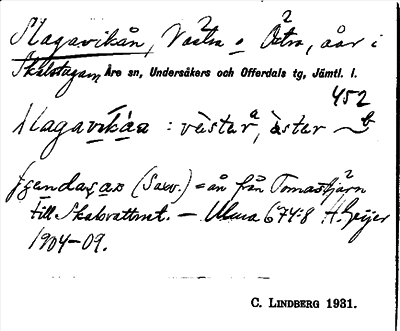 Slagavikån, Västra o Östra, åar i
Skalstugan, Åre sn, Undersåkers och Offerdals tg, Jämtl. l.
452
: vèster, ster
(Saxv.) = ån från Tomastjärn
till Skalsvattnet. – Ulma 674:8 H. Geijer
1904-09.
C. LINDBERG 1931.